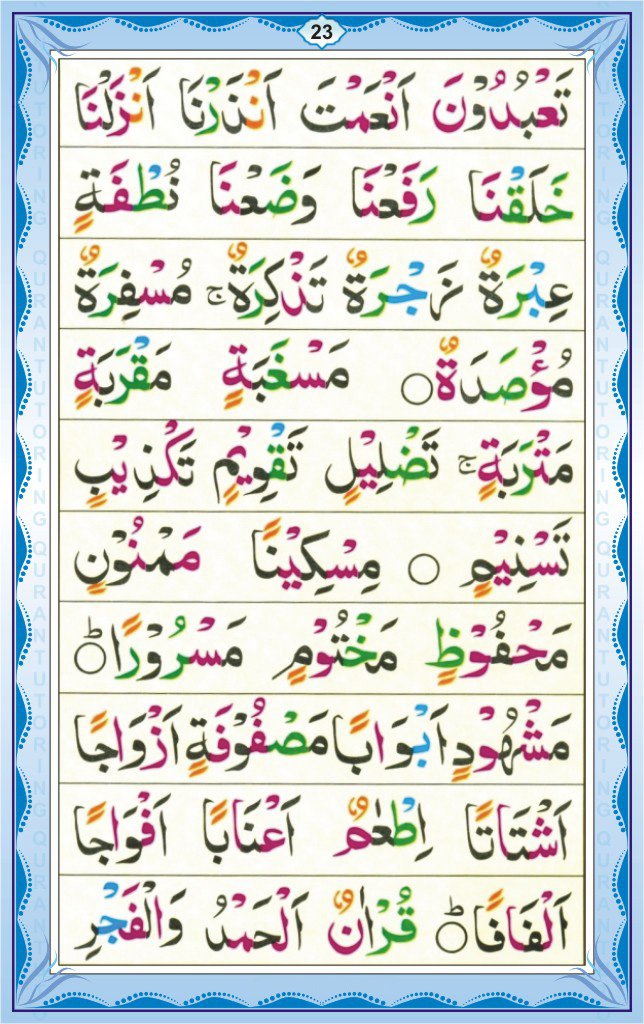 23
تَعْبُدُوْنَ اَنْعَمْتَ اَنْذَرْنَا اَنْزَلْنَا
خَلَقْنَا رَفَعْنَا وَضَعْنَا نُطْفَةٍ
عِبْرَةٌ زَجْرَةٌ تَذْكِرَةٌ ج مُسْفِرَةٌ
مُؤْصَدَةٌ ○ مَسْغَبَةٍ مَقْرَبَةٍ
مَتْرَبَةٍ ج تَضْلِيْلٍ تَقْوِيْمٍ تَكْذِيْبٍ
تَسْنِيْمٍ ○ مِسْكِيْنًا مَمْنُوْنٍ
مَحْفُوْظٍ مَخْتُوْمٍ مَسْرُوْرًا ○ؕ
مَشْهُوْدٍ اَبْوَابًا مَصْفُوْفَةٍ اَزْوَاجًا
اَشْتَاتًا اِطْعٰمٌ اَعْنَابًا اَفْوَاجًا
اَلْفَافًا ○ؕ قُرْاٰنٌ اَلْحَمْدُ وَالْفَجْرِ
QURAN TUTORING